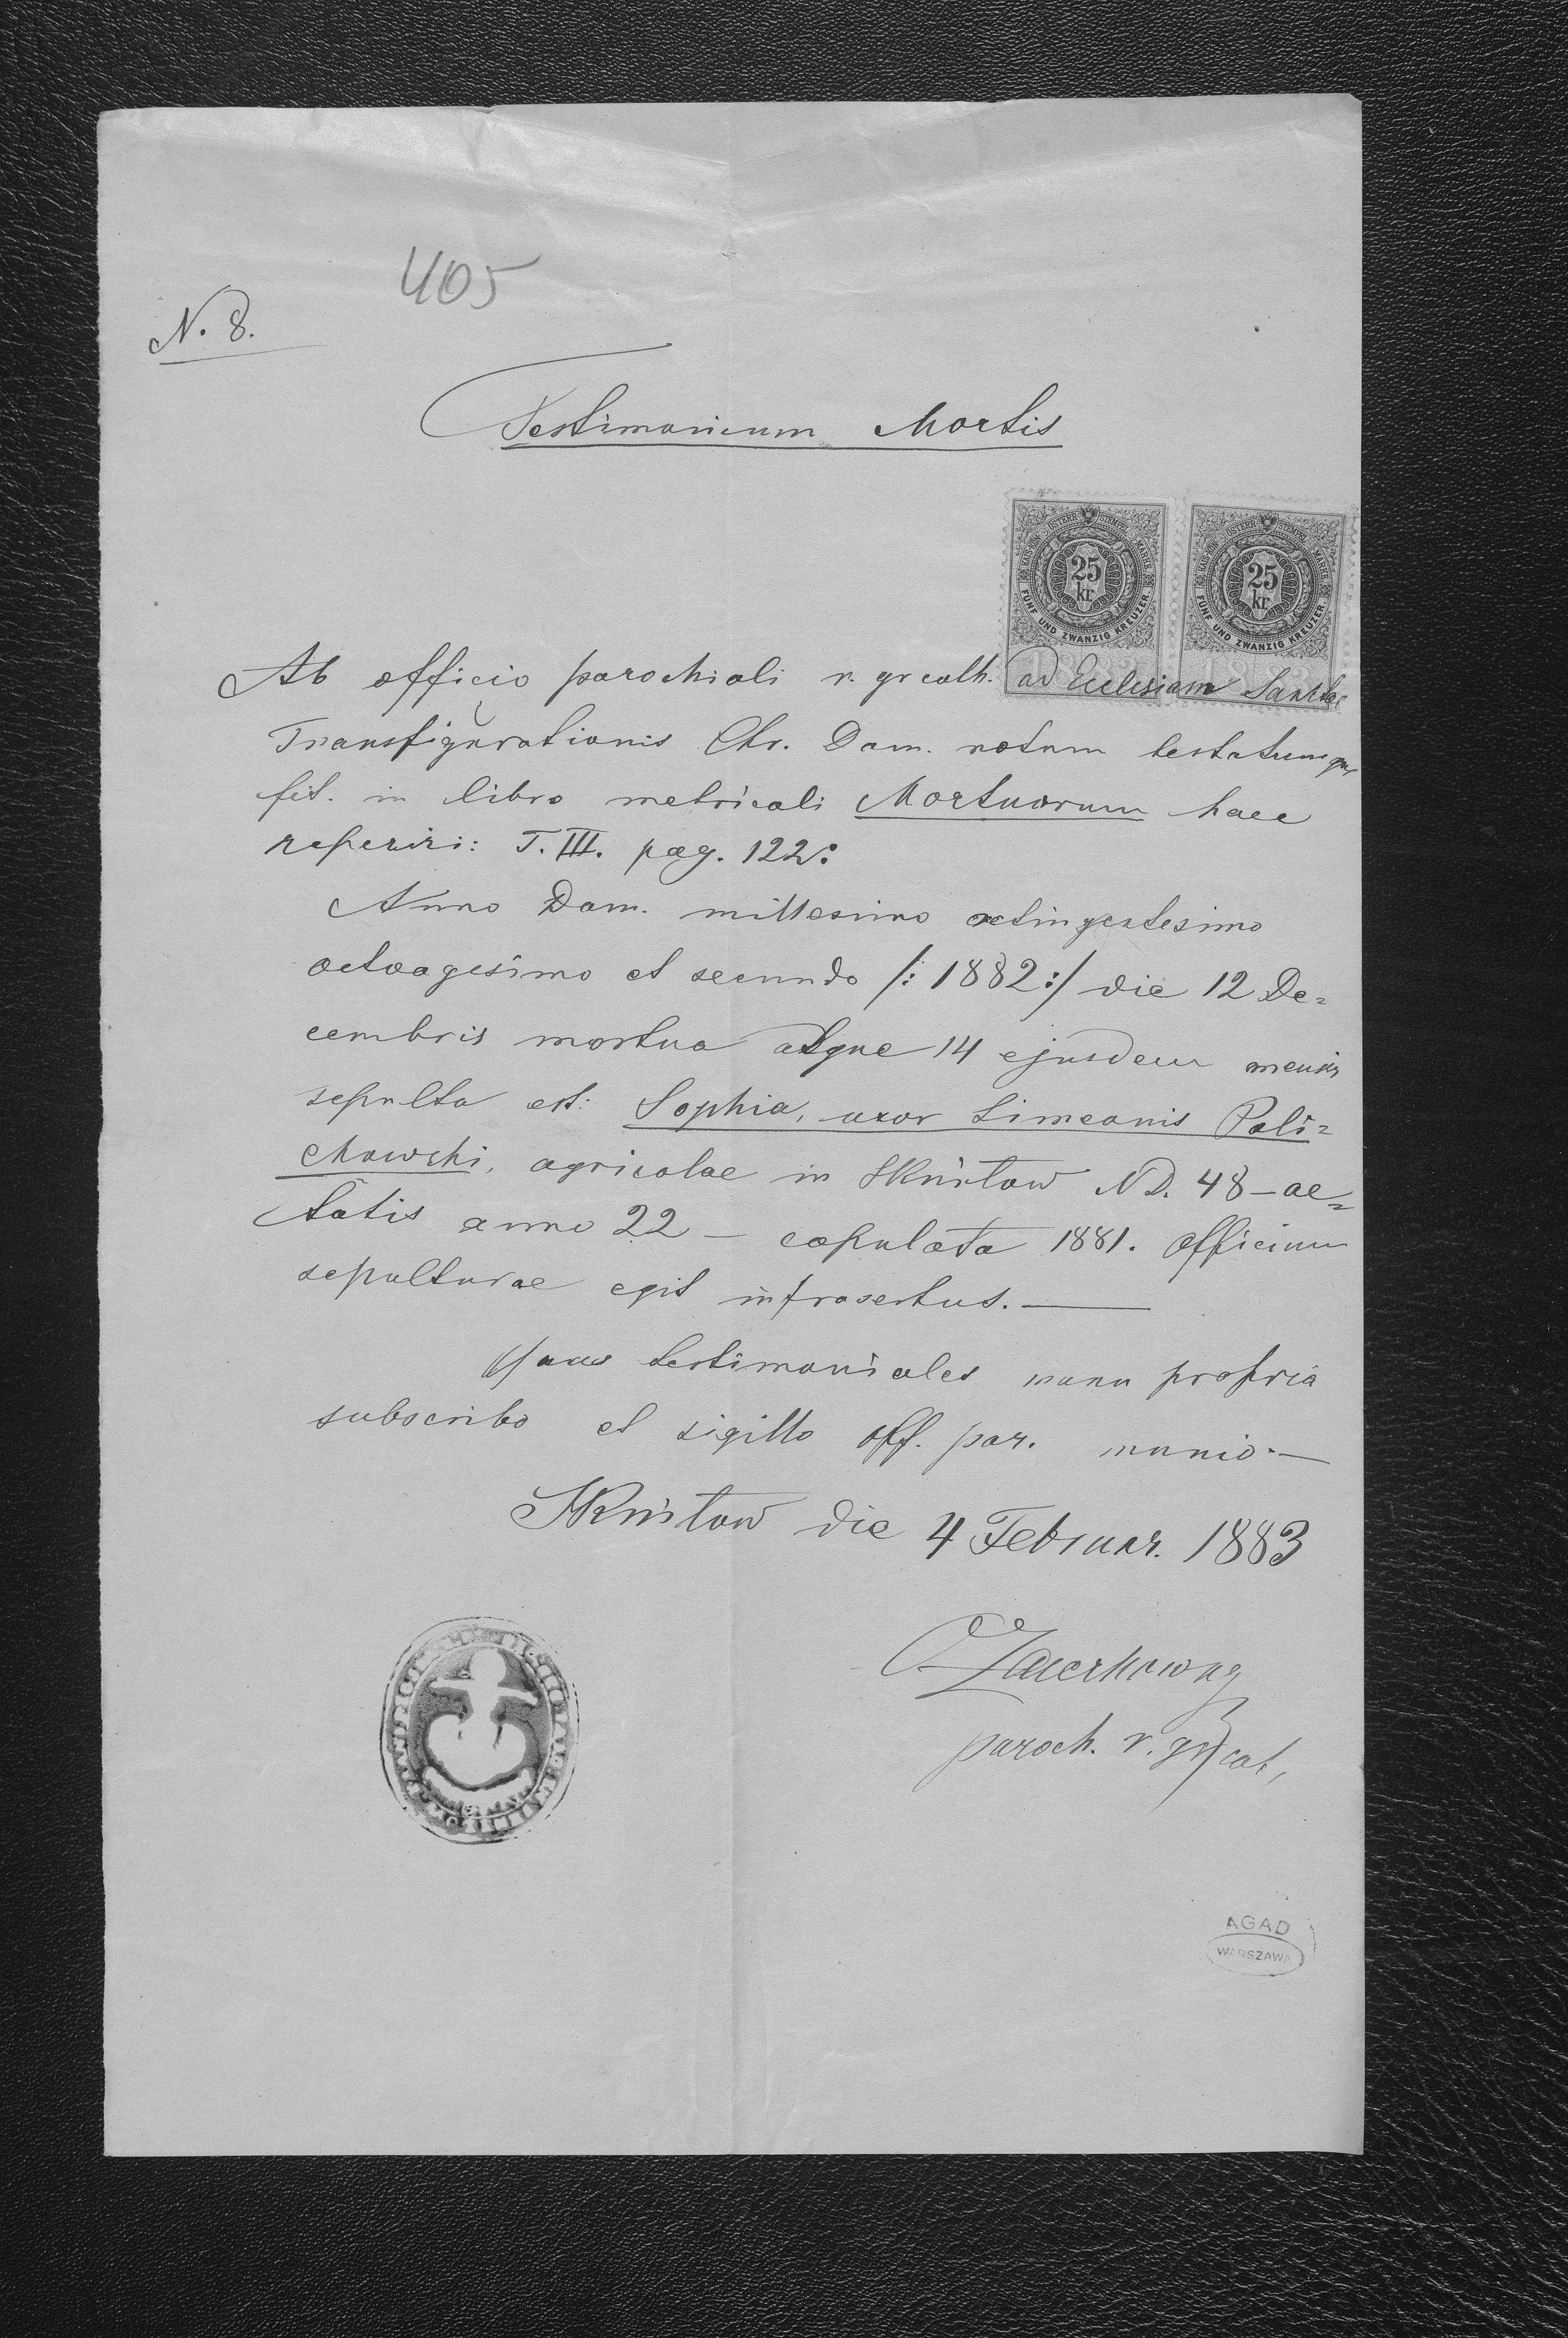 405
N. 8.
Testimonium Mortis
KAIS. KÖN. ÖSTERR. STEMPEL MARKE
25
kr
FÜNF UND ZWANZIG KREUZER
KAIS. KÖN. ÖSTERR. STEMPEL MARKE
25
kr
FÜNF UND ZWANZIG KREUZER
Ab officio parochiali r. gr cath. ad Ecclesiam Sanctae
Transfigurationis Chr. Dom. notum testatumque
fit. in libro metricali Mortuorum haec
reperiri: T. III. pag. 122:
Anno Dom. millesimo octingentesimo
octoagesimo et secundo /: 1882 :/ die 12 De=
cembris mortua atque 14 ejusdem mensis
sepulta est: Sophia, uxor Simeonis Poli=
chowski, agricolae in Kniłow ND. 48 – ae=
tatis anno 22 – copulata 1881. Officium
sepulturae egit infrasertus. —
Hasce testimoniales manu propria
subscribo et sigillo off. par. munio. —
die 4 Februar. 1883
paroch. r. gr cat,
AGAD
WARSZAWA